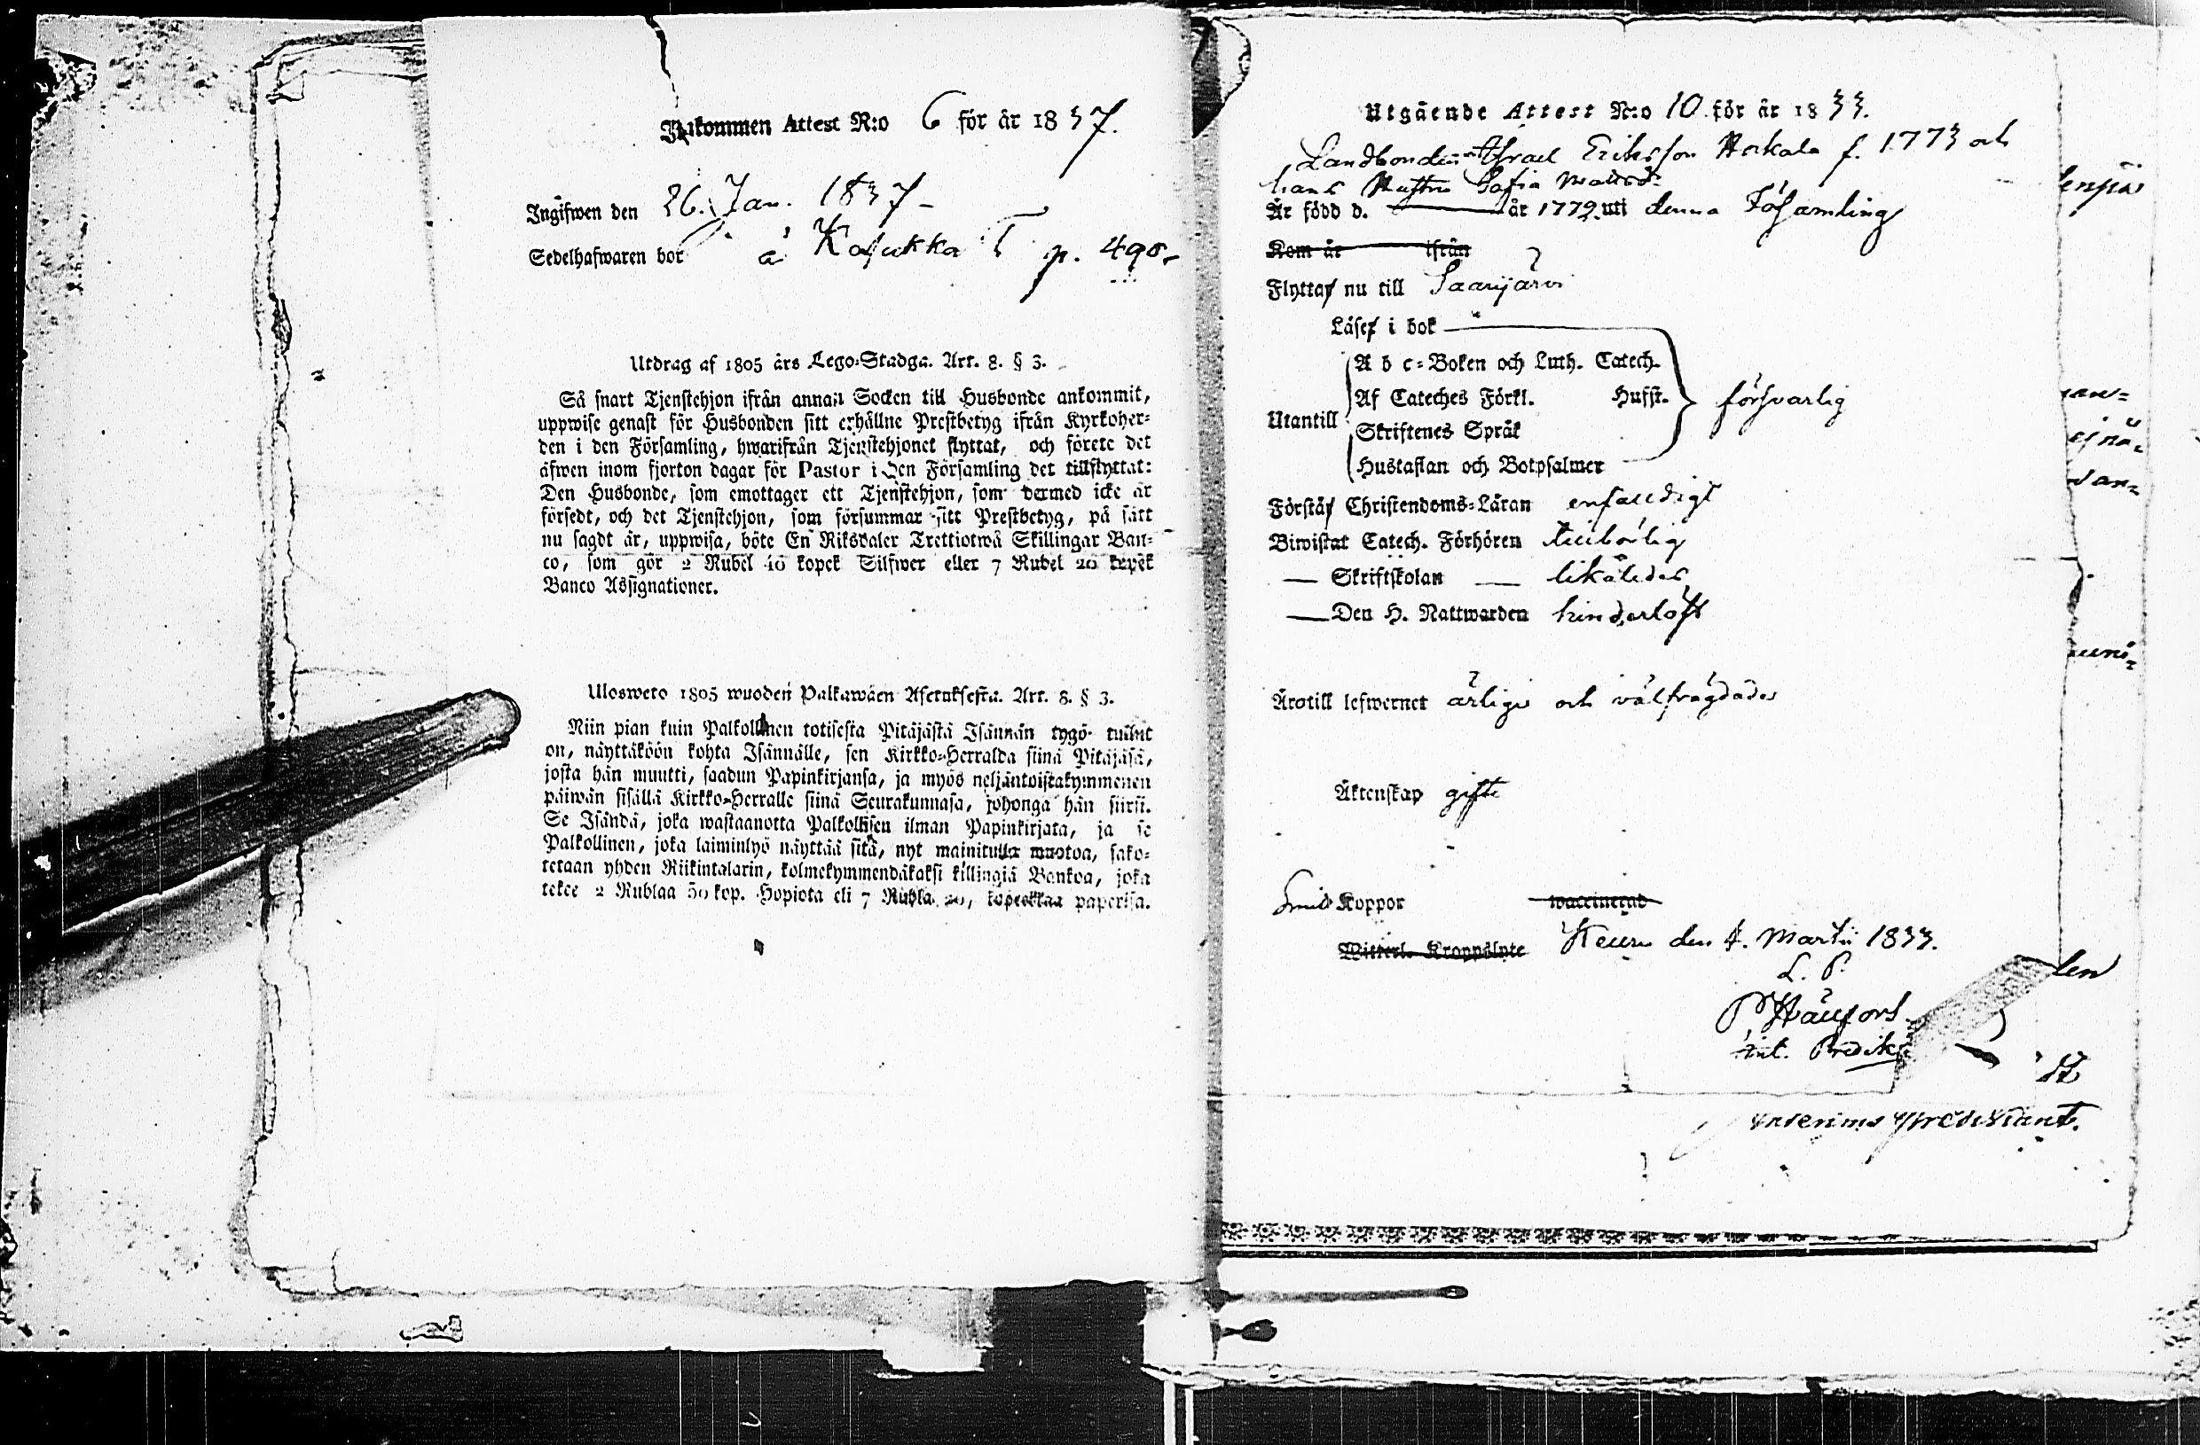 Inkommen Attest N:o 6 för år 1837.
Ingifwen den 26. Jan. 1837 –
Sedelhafwaren bor å Kasukka T p. 490.
Utdrag af 1805 års Lego-Stadga. Art. 8. § 3.
Så snart Tjenstehjon ifrån annan Socken till Husbonde ankommit,
uppwise genast för Husbonden sitt erhållne Prestbetyg ifrån Kyrkoher-
den i den Församling, hwarifrån Tjenstehjonet flyttat, och förete det
äfwen inom fjorton dagar för Pastor i den Församling det tillflyttat:
Den Husbonde, som emottager ett Tjenstehjon, som dermed icke är
försedt, och det Tjenstehjon, som försummar sitt Prestbetyg, på sätt
nu sagdt är, uppwisa, böte En Riksdaler Trettiotwå Skillingar Ban-
co, som gör 2 Rubel 16 kopek Silfwer eller 7 Rubel 20 kopek
Banco Assignationer.
Ulosweto 1805 wuoden Palkawäen Asetuksesta. Art. 8. § 3.
Niin pian kuin Palkollinen totisesta Pitäjästä Isännän tygö tullut
on, näyttäköön kohta Isännälle, sen Kirkko-Herralda siinä Pitäjäsä,
josta hän muutti, saadun Papinkirjansa, ja myös neljäntoistakymmenen
päiwän sisällä Kirkko-Herralle siinä Seurakunnasa, johonga hän siirsi.
Se Isändä, joka wastaanotta Palkollisen ilman Papinkirjata, ja se
Palkollinen, joka laiminlyö näyttää sitä, nyt mainitulla muotoa, sako-
tetaan yhden Riikintalarin, kolmekymmendäkaksi killingiä Bankoa, joka
tekee 2 Rublaa 50 kop. Hopiota eli 7 Rubla 20, kopeekkaa paperisa.
Utgående Attest N:o 10 för år 1833.
Landbonden Israel Eriksson Hokala f. 1773 och
hans Hustru Sofia Matsd:r
Är född d. år 1779 uti denna Församling
Kom år ifrån
Flyttar nu till Saarijärvi
Läser i bok
A b c-Boken och Luth. Catech.
Utantill
Af Cateches Förkl. Hufst. försvarlig
Skriftenes Språk
Hustaflan och Botpsalmer
Förstår Christendoms-Läran enfaldigt
Biwistat Catech. Förhören tillbörlig
— Skriftskolan — likaledes
— Den H. Nattwarden hinderlöst
Är otill lefwernet ärlige och välfrägdade
Äktenskap gifte
Smit Koppor waccinerad
Witterl. Kroppslyte Keuru den 4. Martii 1833.
L. P.
int. Predik
len
interims Predikant.